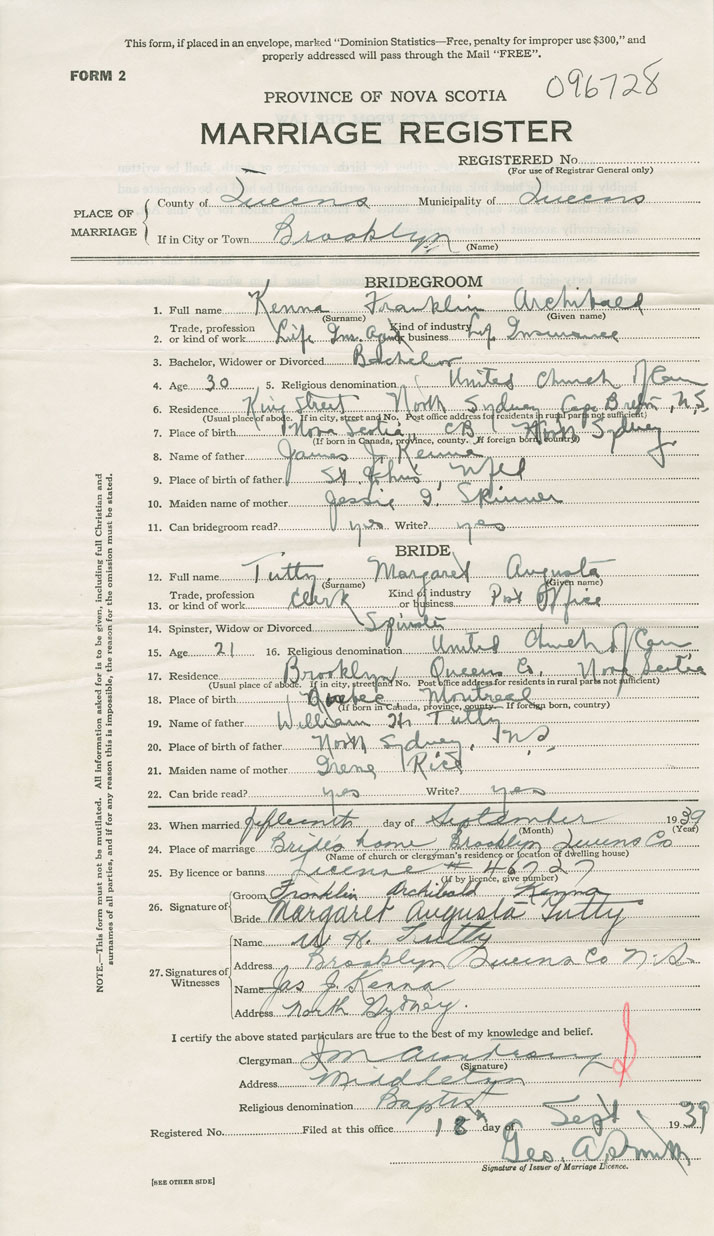 This form, if placed in an envelope, marked "Dominion Statistics—Free, penalty for improper use $300," and
properly addressed will pass through the Mail "FREE".
FORM 2
096728
PROVINCE OF NOVA SCOTIA
MARRIAGE REGISTER
REGISTERED No.
(For use of Registrar General only)
PLACE OF MARRIAGE
County of Queens Municipality of Queens
If in City or Town Brooklyn
(Name)
BRIDEGROOM
1. Full name Kenna Franklin Archibald
(Surname) (Given name)
2. Trade, profession or kind of work Life Ins. Agent Kind of industry or business Life Insurance
3. Bachelor, Widower or Divorced Bachelor
4. Age 30 5. Religious denomination United Church of Can
6. Residence King Street North Sydney Cape Breton, N.S.
(Usual place of abode. If in city, street and No. Post office address for residents in rural parts not sufficient)
7. Place of birth Nova Scotia, CB North Sydney
(If born in Canada, province, county. If foreign born, country)
8. Name of father James J. Kenna
9. Place of birth of father St. John's, Nfld
10. Maiden name of mother Jessie I. Skinner
11. Can bridegroom read? yes Write? yes
BRIDE
12. Full name Tutty, Margaret Augusta
(Surname) (Given name)
13. Trade, profession or kind of work Clerk Kind of industry or business Post Office
14. Spinster, Widow or Divorced Spinster
15. Age 21 16. Religious denomination United Church of Can
17. Residence Brooklyn Queens Co. Nova Scotia
(Usual place of abode. If in city, street and No. Post office address for residents in rural parts not sufficient)
18. Place of birth Quebec Montreal
(If born in Canada, province, county. If foreign born, country)
19. Name of father William H. Tutty
20. Place of birth of father North Sydney, N.S.
21. Maiden name of mother Irene Rice
22. Can bride read? yes Write? yes
23. When married fifteenth day of September 1939
(Month) (Year)
24. Place of marriage Bride's home, Brooklyn Queens Co
(Name of church or clergyman's residence or location of dwelling house)
25. By licence or banns License # 46727
(If by licence, give number)
26. Signature of
Groom Franklin Archibald Kenna
Bride Margaret Augusta Tutty
27. Signatures of Witnesses
Name W. H. Tutty
Address Brooklyn Queens Co N.S.
Name Jas J. Kenna
Address North Sydney.
I certify the above stated particulars are true to the best of my knowledge and belief.
Clergyman
(Signature)
Address Middleton
Religious denomination Baptist
Registered No. Filed at this office 18th day of Sept 1939
Geo. A. Smith
Signature of Issuer of Marriage Licence.
[SEE OTHER SIDE]
NOTE.—This form must not be mutilated. All information asked for is to be given, including full Christian and
surnames of all parties, and if for any reason this is impossible, the reason for the omission must be stated.